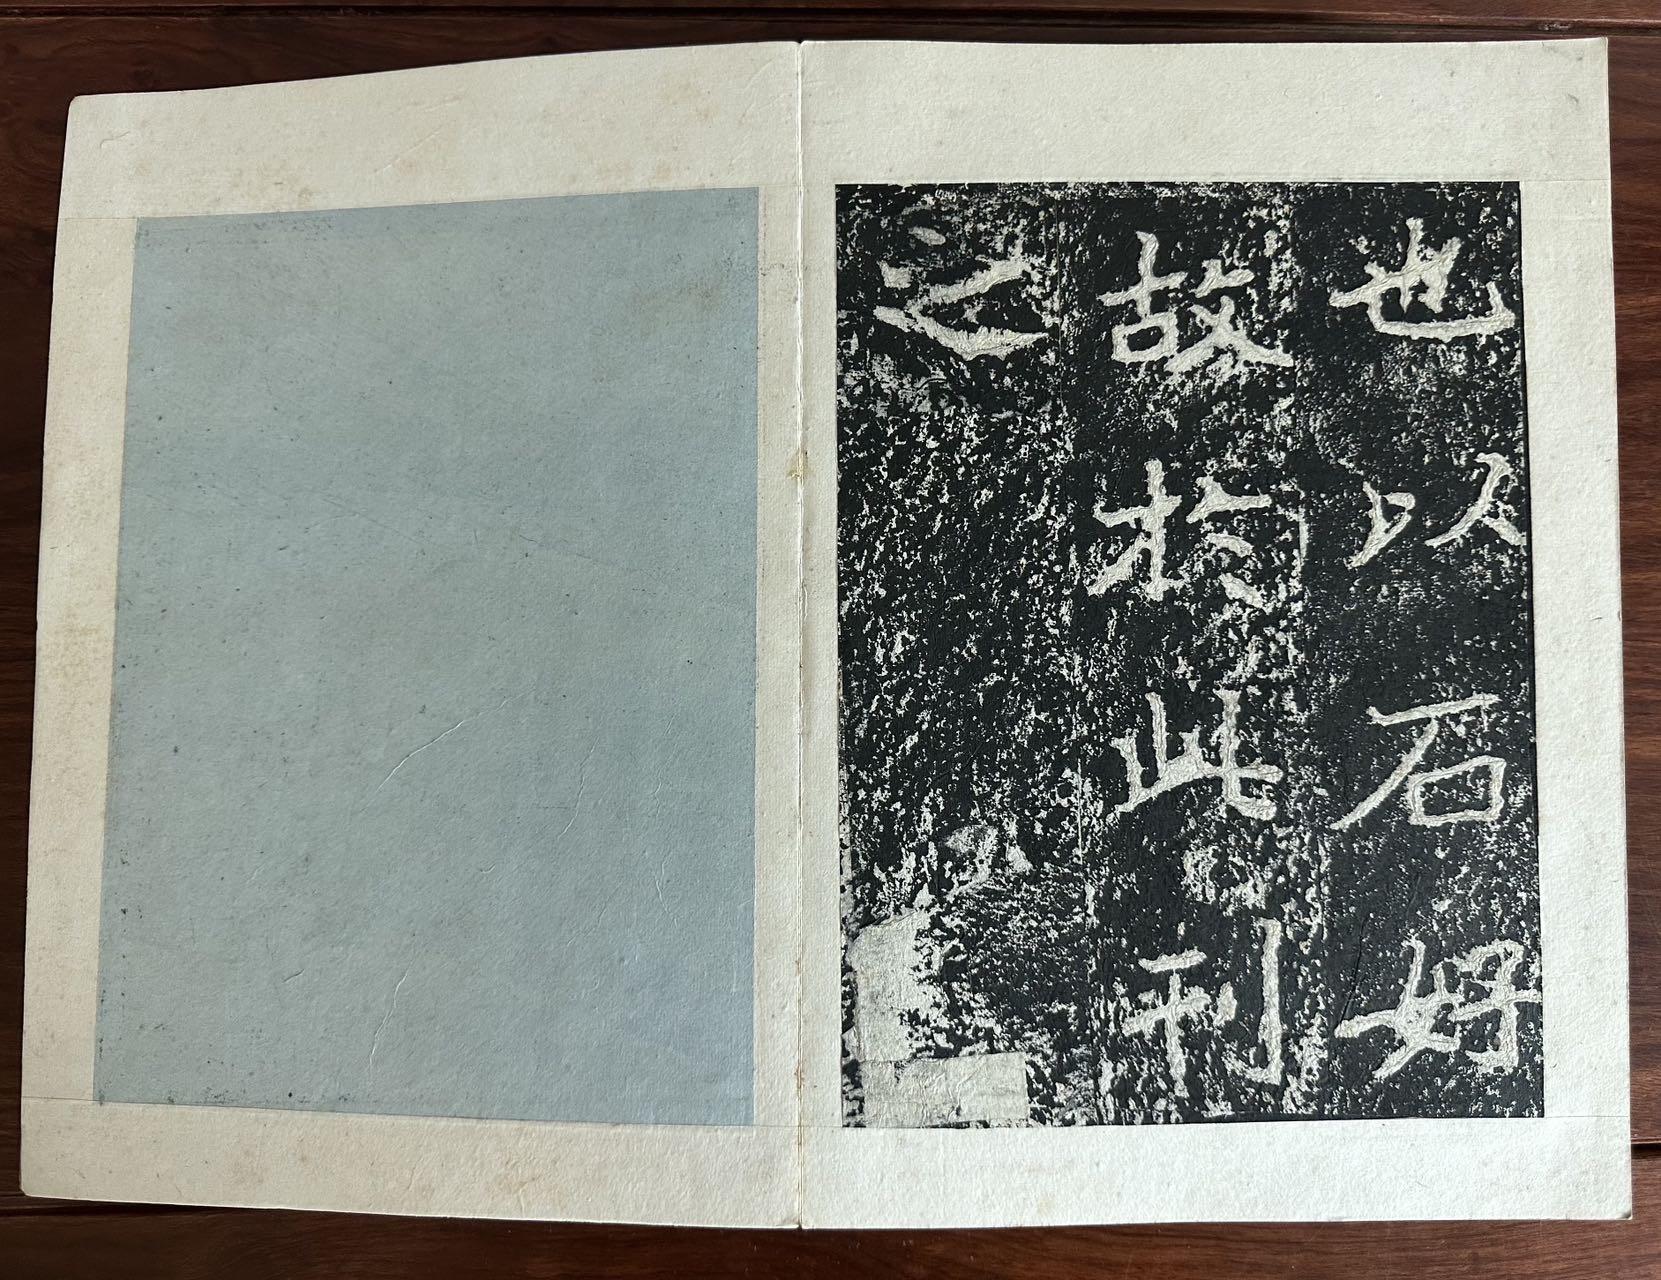 也以石好
故於此刊
之